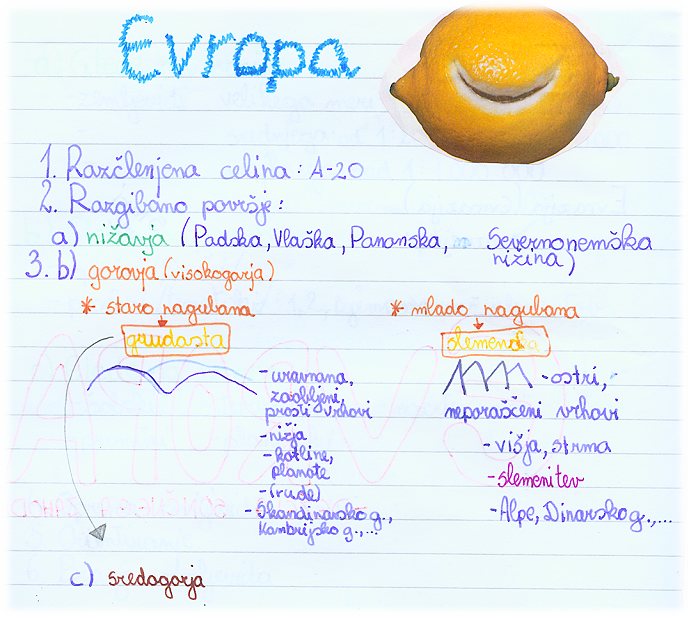 Evropa
1. Razčlenjena celina: A-20
2. Razgibano površje:
a) nižavja (Padska, Vlaška, Panonska, Severnonemška
nižina)
3. b) gorovja (visokogorja)
* staro nagubana
* mlado nagubana
grudasta
slemenska
- uravnana,
zaobljeni,
prosti vrhovi
- nižja
- kotline,
planote
- (rude)
- Skandinavsko g.,
Kambrijsko g.,...
- ostri,
neporaščeni vrhovi
- višja, strma
- slemenitev
- Alpe, Dinarsko g.,...
c) sredogorja